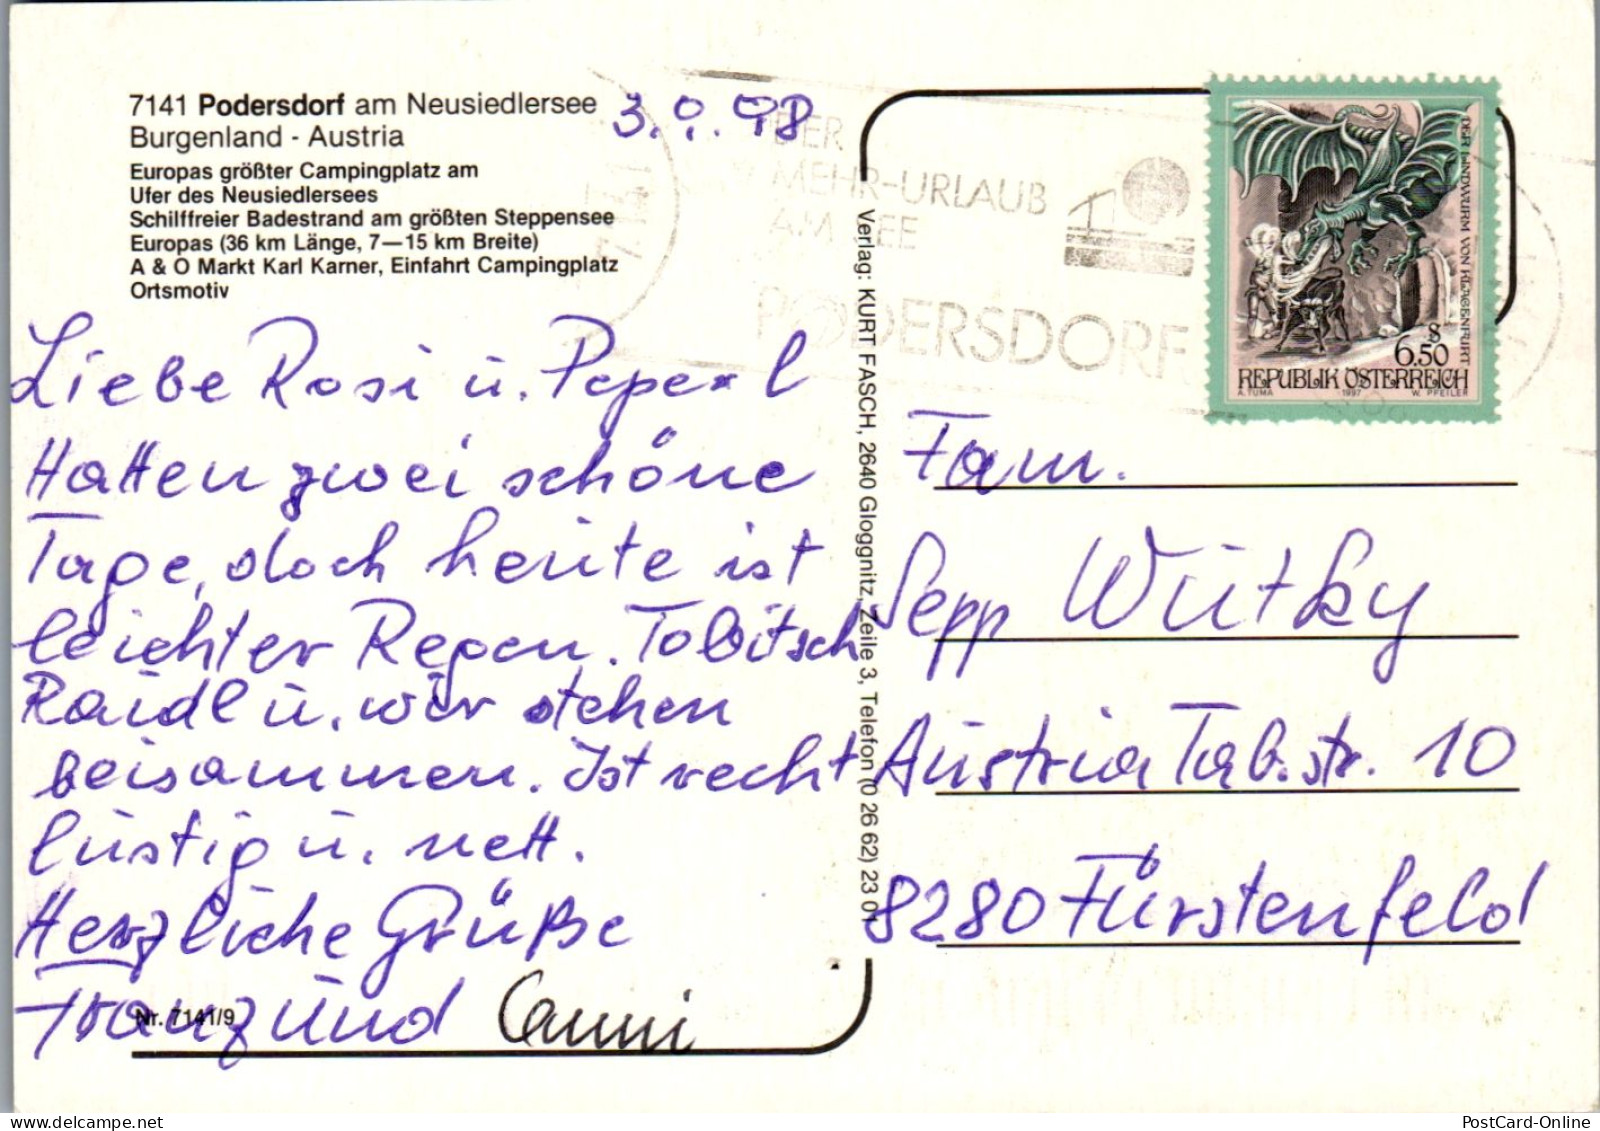 7141 Podersdorf am Neusiedlersee
Burgenland - Austria
Europas größter Campingplatz am
Ufer des Neusiedlersees
Schilffreier Badestrand am größten Steppensee
Europas (36 km Länge, 7—15 km Breite)
A & O Markt Karl Karner, Einfahrt Campingplatz
Ortsmotiv
3.9.98
Liebe Rosi u. Peperl
Hatten zwei schöne
Tage, doch heute ist
leichter Regen. Tobitsch
Raidl u. wir stehen
beisammen. Ist recht
lustig u. nett.
Herzliche Grüße
Franz und
Nr. 7141/9
Verlag: KURT FASCH, 2640 Gloggnitz, Zeile 3, Telefon (0 26 62) 23 01
DER
MEHR-URLAUB
AM SEE
PODERSDORF
7141
DER LINDWURM VON KLAGENFURT
S
6.50
REPUBLIK ÖSTERREICH
A. TUMA 1997 W. PFEILER
Fam.
Sepp Wutky
Austria Tab.str. 10
8280 Fürstenfeld
PostCard-Online